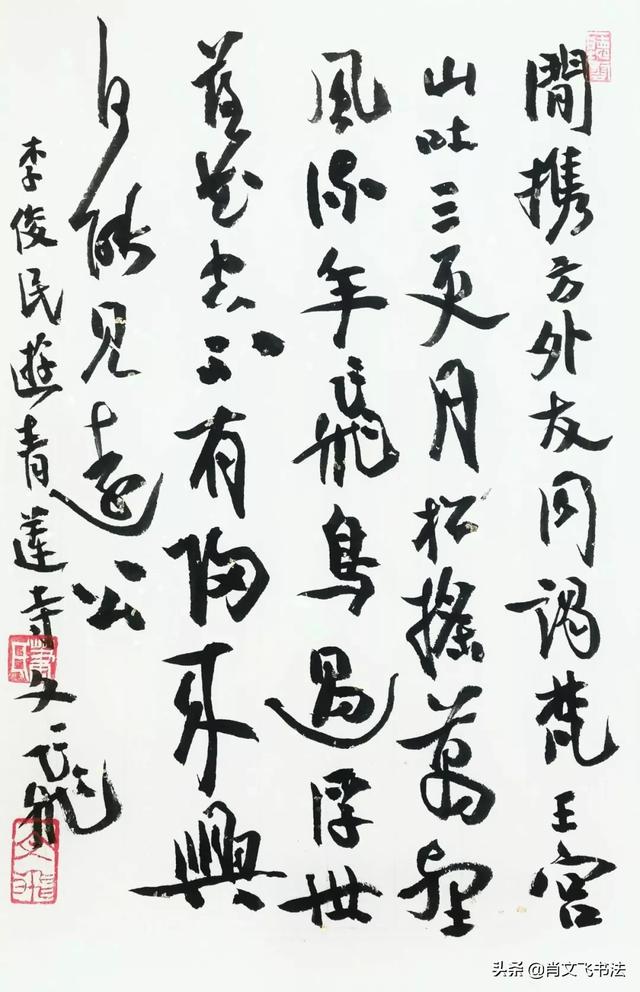 閒携方外友同謁梵王宫
山吐三更月松摇萬壑
風流年飛鳥過浮世
落花空不有歸来興
何能見遠公
李俊民遊青蓮寺文飛
文飛
头条 @肖文飞书法